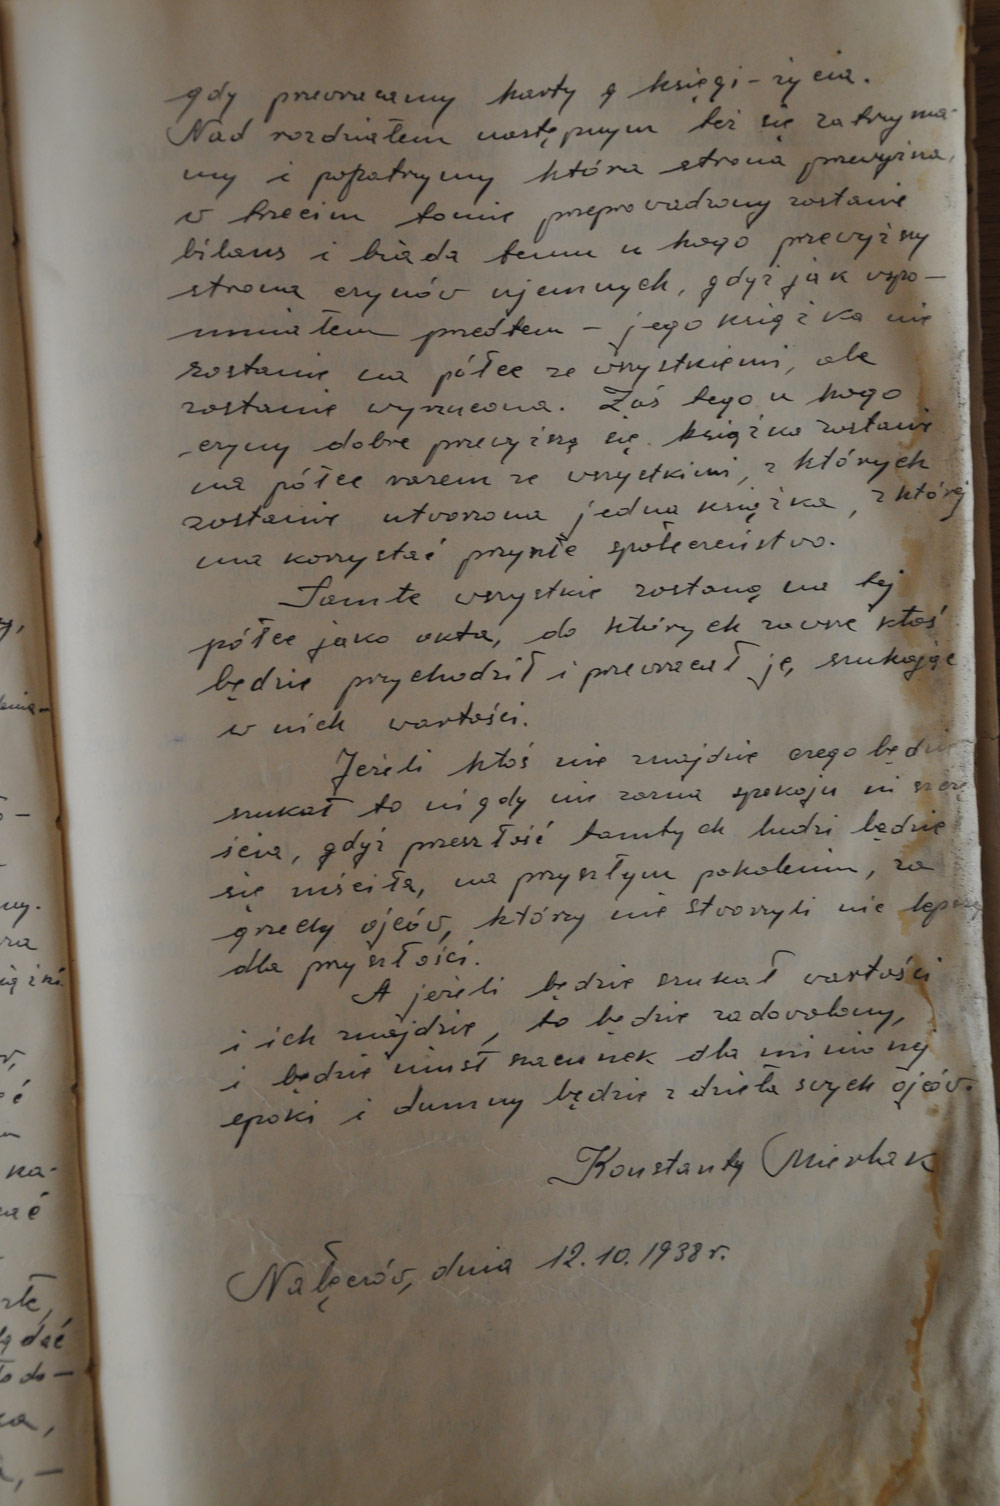 gdy przewracamy karty g księgi – życia.
Nad rozdziałem następnym też się zatrzyma-
my i popatrzymy która strona przewyższa,
w trzecim tomie przeprowadzony zostanie
bilans i biada temu u kogo przewyższy
strona czynów ujemnych, gdyż jak wspo-
mniałem przedtem – jego książka nie
zostanie na półce ze wszystkiemi, ale
zostanie wyrzucona. Zaś tego u kogo
czyny dobre przewyższą się książka zostanie
na półce razem ze wszystkimi, z których
zostanie utworzona jedna książka, z której
ma korzystać przyszłe społeczeństwo.
Tamte wszystkie zostaną na tej
półce jako akta, do których zawsze ktoś
będzie przychodził i przewracał je, szukając
w nich wartości.
Jeżeli ktoś nie znajdzie czego będzie
szukał to nigdy nie zazna spokoju ni szczę
ścia, gdyż przeszłość tamtych ludzi będzie
się mściła, na przyszłym pokoleniu, za
grzechy ojców, którzy nie stworzyli nic
dla przyszłości.
A jeżeli będzie szukał wartości
i ich znajdzie, to będzie zadowolony,
i będzie miał szacunek dla minionej
epoki i dumny będzie z dzieła swych ojców.
Konstanty
Nałęczów, dnia 12.10.1938 r.